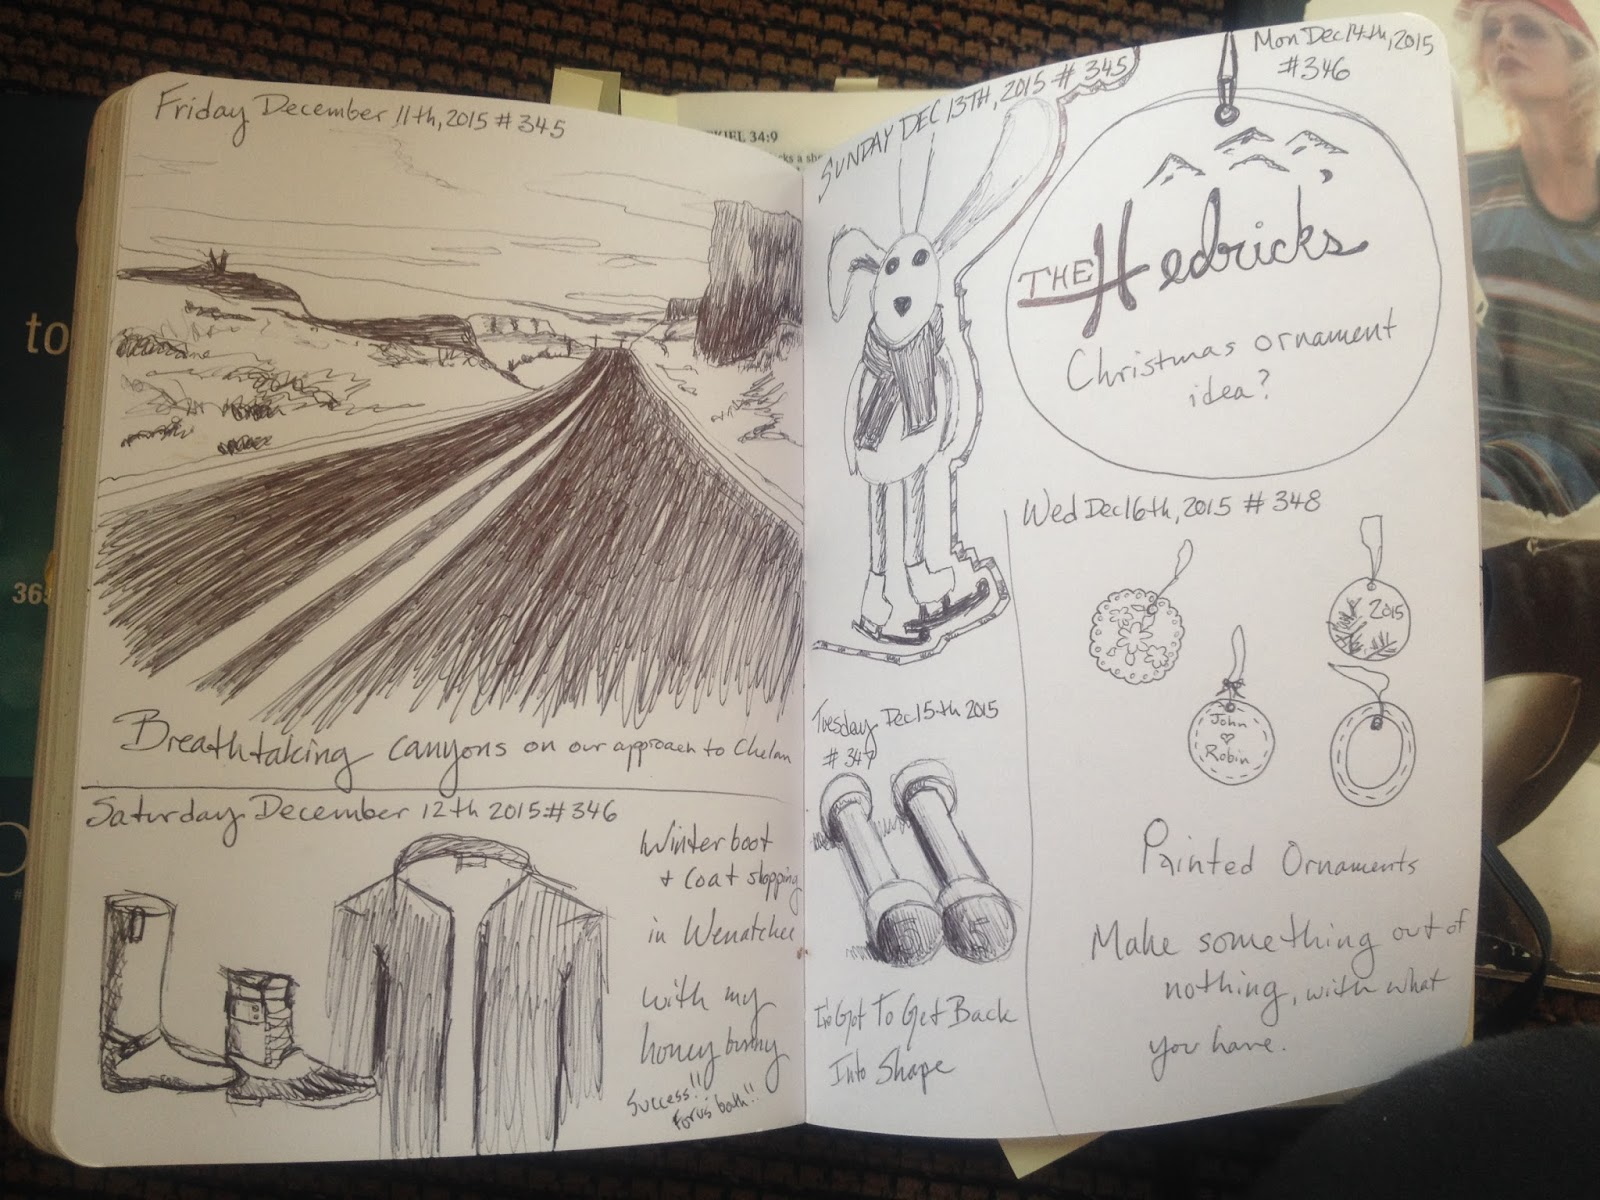 Friday December 11th, 2015 # 345
Breathtaking canyons on our approach to Chelan
Saturday December 12th 2015 # 346
Winter boot
+ coat shopping
in Wenatchee
with my
honey bunny
Success!!
For us both!!
SUNDAY DEC 13TH, 2015 # 345
Tuesday Dec 15th 2015
# 347
I've Got To Get Back
Into Shape
Mon Dec 14th, 2015
#346
THE Hedricks
Christmas ornament
idea?
Wed Dec 16th, 2015 # 348
2015
John
Robin
Painted Ornaments
Make something out of
nothing, with what
you have.
34:9
to